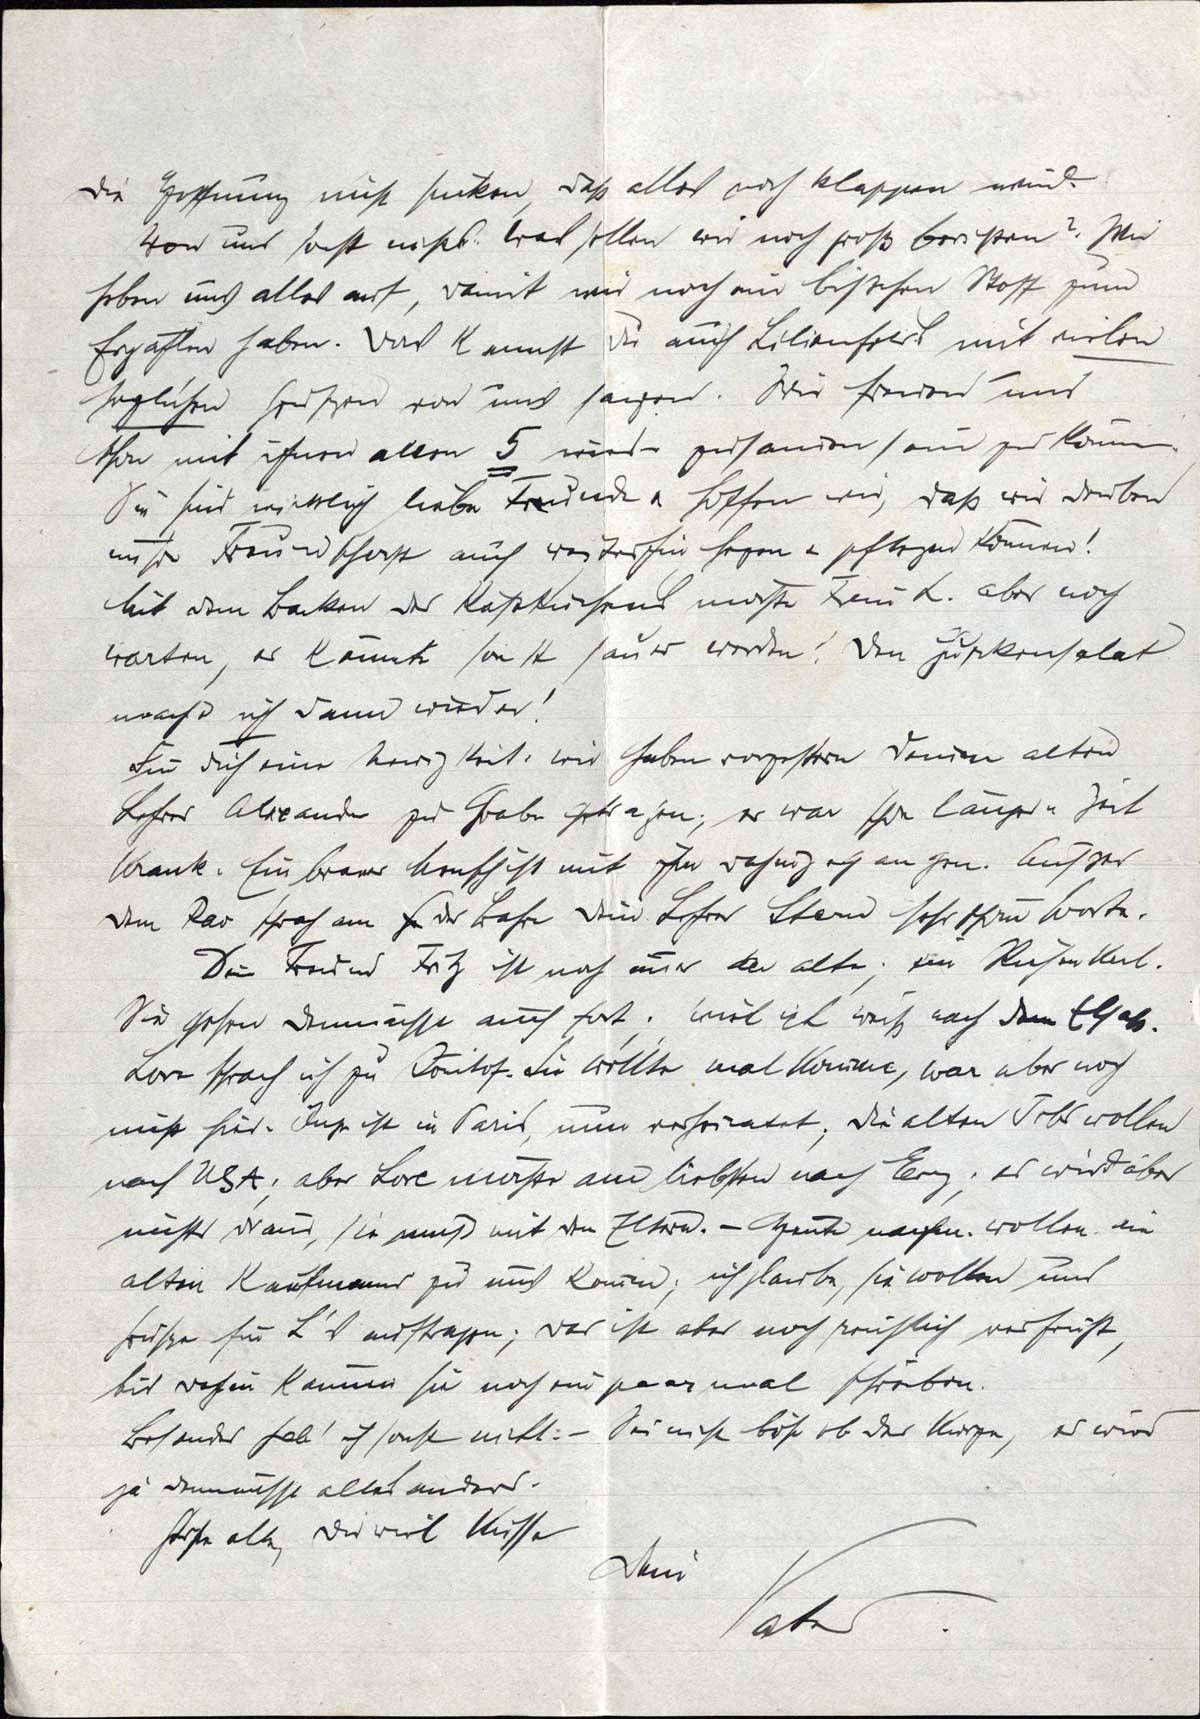 die Hoffnung nicht sinken, daß alles noch klappen wird.
Von uns sonst nichts. Was sollen wir noch groß berichten? Wir
heben uns alles auf, damit wir noch ein bißchen Stoff zum
Erzählen haben. Das kannst Du auch Lilienfelds mit vielen
herzlichen Grüßen von uns sagen. Wir freuen uns
schon mit ihnen allen 5 wieder zusammen sein zu können.
Sie sind wirklich liebe Freunde & hoffen wir, daß wir drüben
unsre Freundschaft auch weiterhin hegen & pflegen können!
Mit dem Backen des Käsekuchens möchte Frau L. aber noch
warten, er könnte sonst sauer werden! Den Gurkensalat
macht ich dann wieder!
Für Dich eine Neuigkeit: wir haben vorgestern Deinen alten
Lehrer Alexander zu Grabe getragen; er war schon längere Zeit
krank. Ein braver Mensch ist mit ihm dahingegangen. Außer
dem Rav sprach am der Bahre Dein Lehrer Stern sehr schöne Worte.
Dein Freund Fritz ist noch immer der alte; ein Riesenkerl.
Sie gehen demnächst auch fort, soviel ich weiß nach dem Elsaß.
Lore sprach ich zu Sie wollte mal kommen, war aber noch
nicht hier. Inge ist in Paris, nun verheiratet; die alten wollen
nach USA; aber Lore möchte am liebsten nach es wird aber
nichts draus, sie muß mit den Eltern. – Heute nachm. wollen die
alten Kaufmanns zu uns kommen; ich glaube, sie wollen uns
Grüße für L's auftragen; das ist aber noch reichlich verfrüht,
bis dahin können sie noch ein paar mal schreiben.
Besonders hab' ich sonst nicht. – Sei nicht bös ob der Kürze, es wird
ja demnächst alles anders.
Grüße alle, Dir viel Küsse
Dein
Vater.